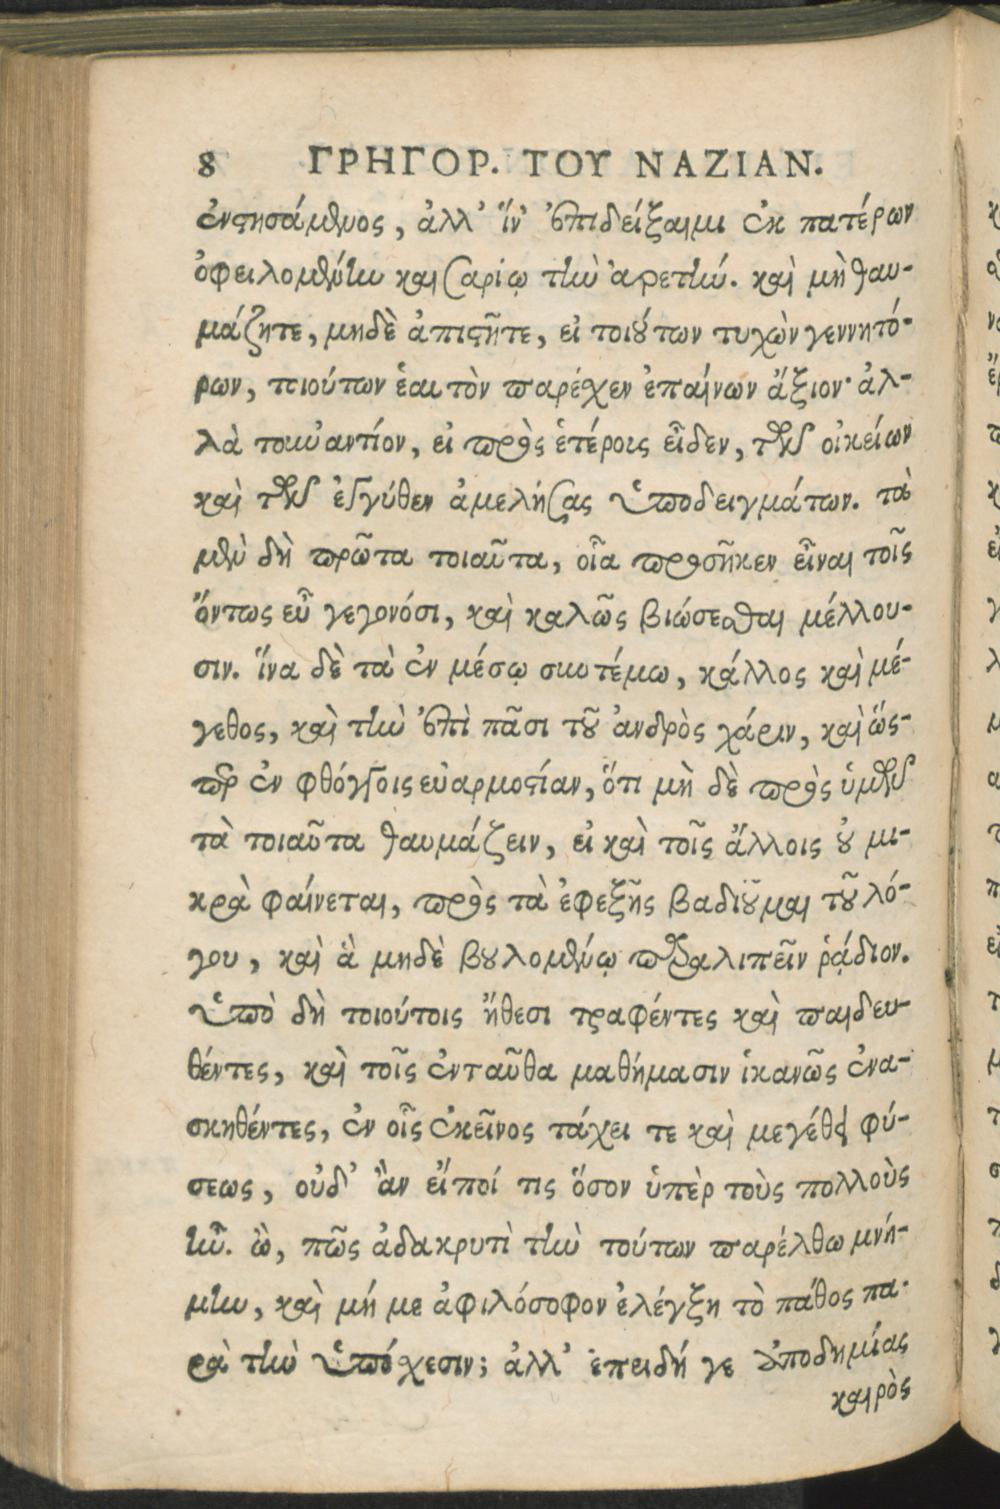 8 ΓΡΗΓΟΡ. ΤΟΥ ΝΑΖΙΑΝ.
ἐνστησάμενος, ἀλλ' ἵν' ἐπιδείξαιμι ἐκ πατέρων
ὀφειλομένην καισαρίῳ τὴν ἀρετήν. καὶ μὴ θαυ-
μάζητε, μηδὲ ἀπιστῆτε, εἰ τοιούτων τυχὼν γεννητό-
ρων, τοιούτων ἑαυτὸν παρέχεν ἐπαίνων ἄξιον· ἀλ-
λὰ τουναντίον, εἰ πρὸς ἑτέροις εἶδεν, τῶν οἰκείων
καὶ τῶν ἐγγύθεν ἀμελήσας ὑποδειγμάτων. τὰ
μὲν δὴ πρῶτα τοιαῦτα, οἷα προσῆκεν εἶναι τοῖς
ὄντως εὖ γεγονόσι, καὶ καλῶς βιώσεσθαι μέλλου-
σιν. ἵνα δὲ τὰ ἐν μέσῳ συντέμω, κάλλος καὶ μέ-
γεθος, καὶ τὴν ἐπὶ πᾶσι τοῦ ἀνδρὸς χάριν, καὶ ὥς-
περ ἐν φθόγγοις εὐαρμοστίαν, ὅτι μὴ δὲ πρὸς ὑμῶν
τὰ τοιαῦτα θαυμάζειν, εἰ καὶ τοῖς ἄλλοις οὐ μι-
κρὰ φαίνεται, πρὸς τὰ ἐφεξῆς βαδιοῦμαι τοῦ λό-
γου, καὶ ἃ μηδὲ βουλομένῳ παραλιπεῖν ῥᾴδιον.
Ὑπὸ δὴ τοιούτοις ἤθεσι τραφέντες καὶ παιδευ-
θέντες, καὶ τοῖς ἐνταῦθα μαθήμασιν ἱκανῶς ἐνα-
σκηθέντες, ἐν οἷς ἐκεῖνος τάχει τε καὶ μεγέθει φύ-
σεως, οὐδ' ἂν εἴποί τις ὅσον ὑπὲρ τοὺς πολλοὺς
ἦν. ὢ, πῶς ἀδακρυτὶ τὴν τούτων παρέλθω μνή-
μην, καὶ μή με ἀφιλόσοφον ἐλέγξη τὸ πάθος πα-
ρὰ τὴν ὑπόχεσιν; ἀλλ' ἐπειδή γε ἀποδημίας
καιρὸς